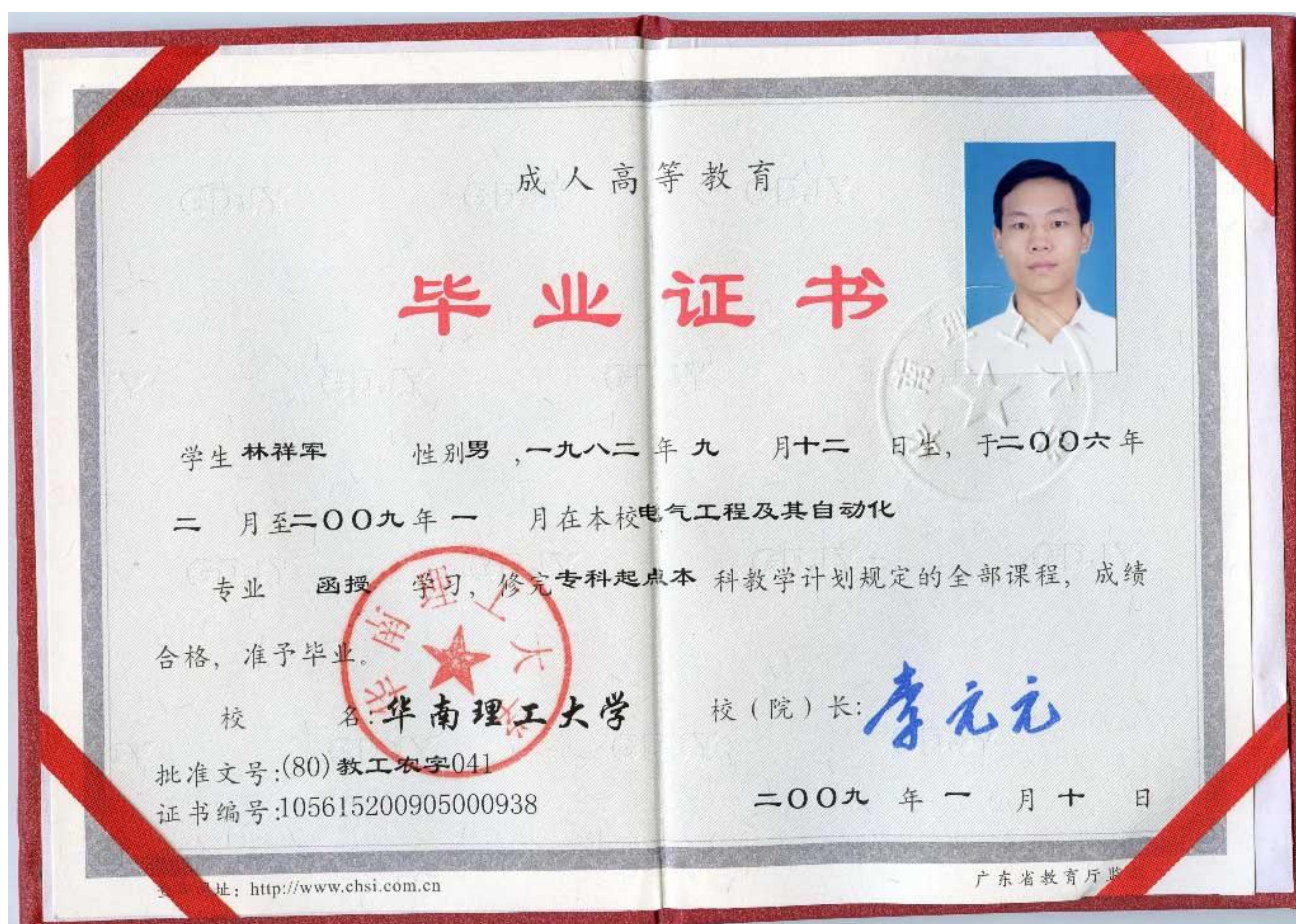 成人高等教育
毕业证书
学生 林祥军 性别男 ,一九八二 年 九 月十二 日生, 于二〇〇六 年
二 月至二〇〇九 年 一 月在本校电气工程及其自动化
专业 函授 学习, 修完专科起点本 科教学计划规定的全部课程, 成绩
合格, 准予毕业。
校 名:华南理工大学 校(院)长:李元元
批准文号:(80)教工农字041
证书编号:105615200905000938 二〇〇九 年 一 月 十 日
址: http://www.chsi.com.cn 广东省教育厅监
华南理工大学
华南理工大学